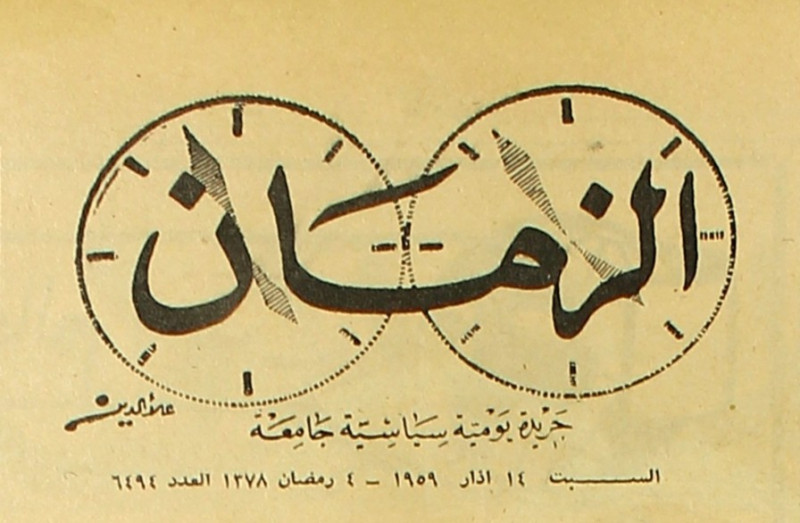 الزمان
علاء الدين
جريدة يومية سياسية جامعة
السبت ١٤ اذار ١٩٥٩ - ٤ رمضان ١٣٧٨ العدد ٦٤٩٤